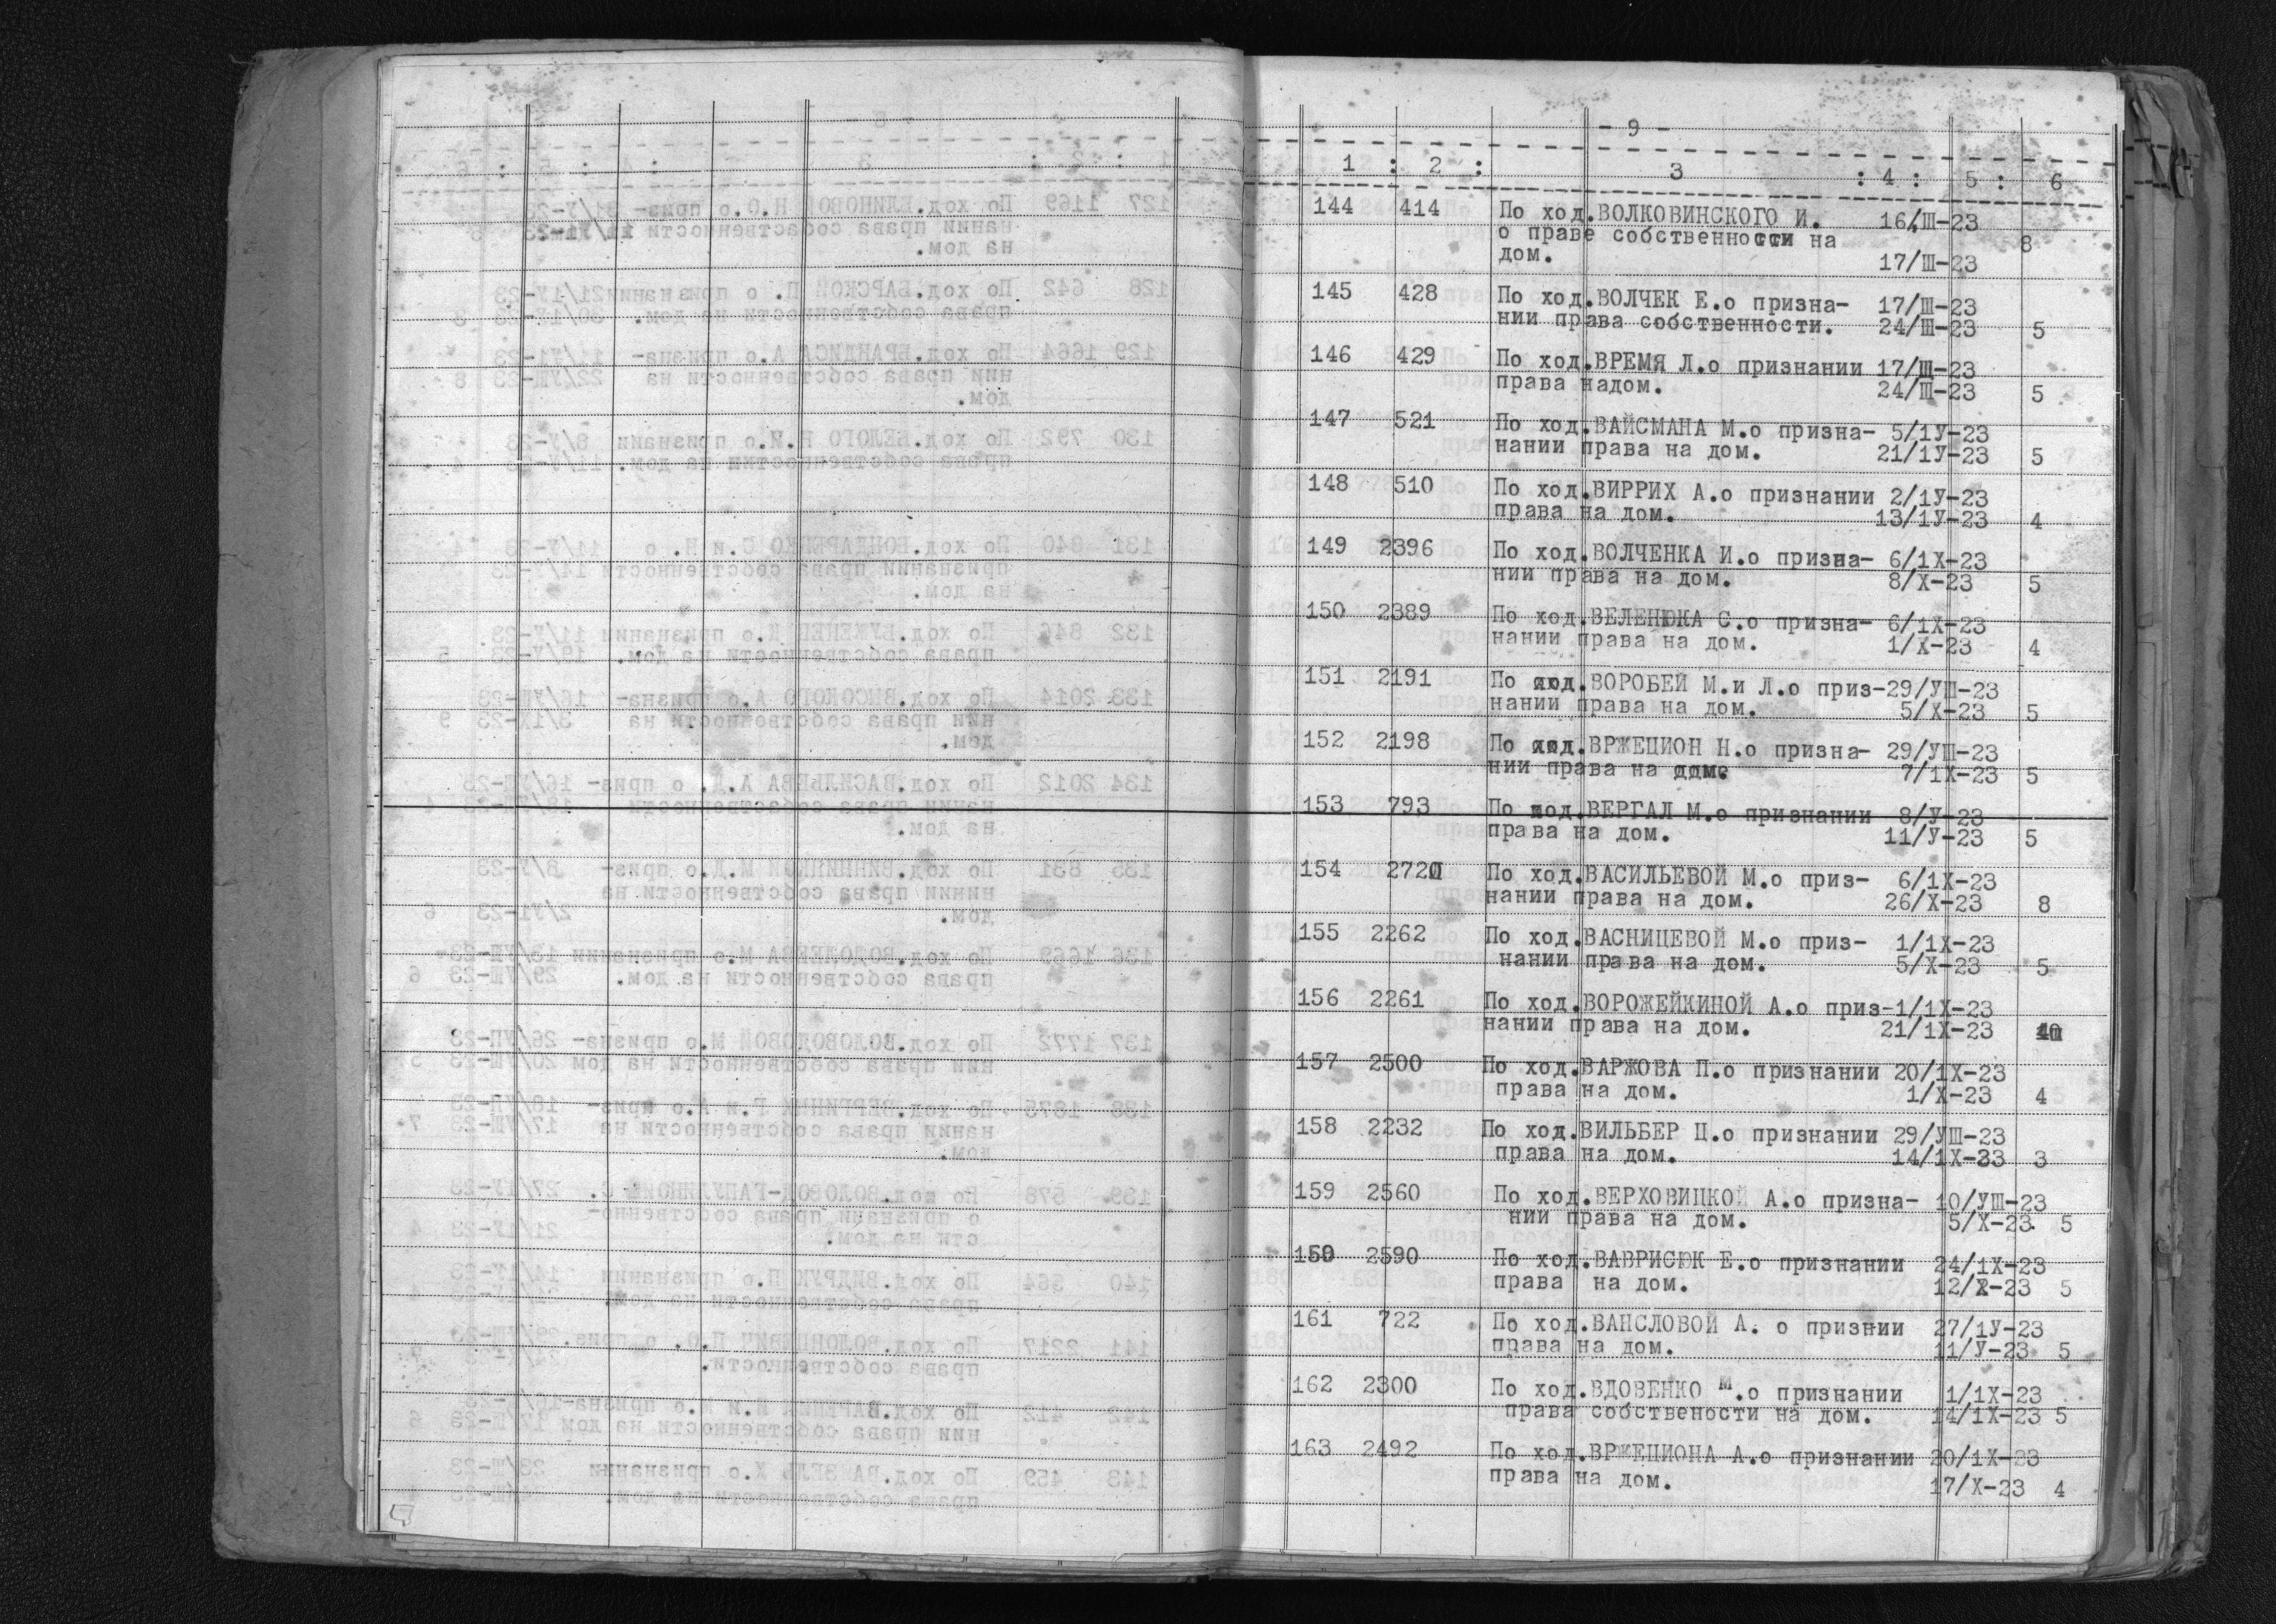 - 9 -
1 : 2 : 3 : 4 : 5 : 6
144 414 По ход.ВОЛКОВИНСКОГО И. 16/Ш-23
о праве собственности на 8
дом. 17/Ш-23
145 428 По ход.ВОЛЧЕК Е.о призна- 17/Ш-23
нии права собственности. 24/Ш-23 5
146 429 По ход.ВРЕМЯ Л.о признании 17/Ш-23
права надом. 24/Ш-23 5
147 521 По ход.ВАЙСМАНА М.о призна- 5/1У-23
нании права на дом. 21/1У-23 5
148 510 По ход.ВИРРИХ А.о признании 2/1У-23
права на дом. 13/1У-23 4
149 2396 По ход.ВОЛЧЕНКА И.о призна- 6/1Х-23
нии права на дом. 8/Х-23 5
150 2389 По ход.ВЕЛЕНЮКА С.о призна- 6/1Х-23
нании права на дом. 1/Х-23 4
151 2191 По ход.ВОРОБЕЙ М.и Л.о приз-29/УШ-23
нании права на дом. 5/Х-23 5
152 2198 По ход.ВРЖЕЦИОН Н.о призна- 29/УШ-23
нии права на дом. 7/1Х-23 5
153 793 По ход.ВЕРГАЛ М.о признании 8/У-23
права на дом. 11/У-23 5
154 По ход.ВАСИЛЬЕВОЙ М.о приз- 6/1Х-23
нании права на дом. 26/Х-23 8
155 2262 По ход.ВАСНИЦЕВОЙ М.о приз- 1/1Х-23
нании права на дом. 5/Х-23 5
156 2261 По ход.ВОРОЖЕЙКИНОЙ А.о приз-1/1Х-23
нании права на дом. 21/1Х-23
157 2500 По ход.ВАРЖОВА П.о признании 20/1Х-23
права на дом. 1/Х-23 4
158 2232 По ход.ВИЛЬБЕР Ц.о признании 29/УШ-23
права на дом. 14/1Х-23 3
159 2560 По ход.ВЕРХОВИЦКОЙ А.о призна- 10/УШ-23
нии права на дом. 5/Х-23 5
2590 По ход.ВАВРИСЮК Е.о признании 24/1Х-23
права на дом. 12/Х-23 5
161 722 По ход.ВАНСЛОВОЙ А. о признии 27/1У-23
права на дом. 11/У-23 5
162 2300 По ход.ВДОВЕНКО М.о признании 1/1Х-23
права собствености на дом. 14/1Х-23 5
163 2492 По ход.ВРЖЕЦИОНА А.о признании 20/1Х-23
права на дом. 17/Х-23 4